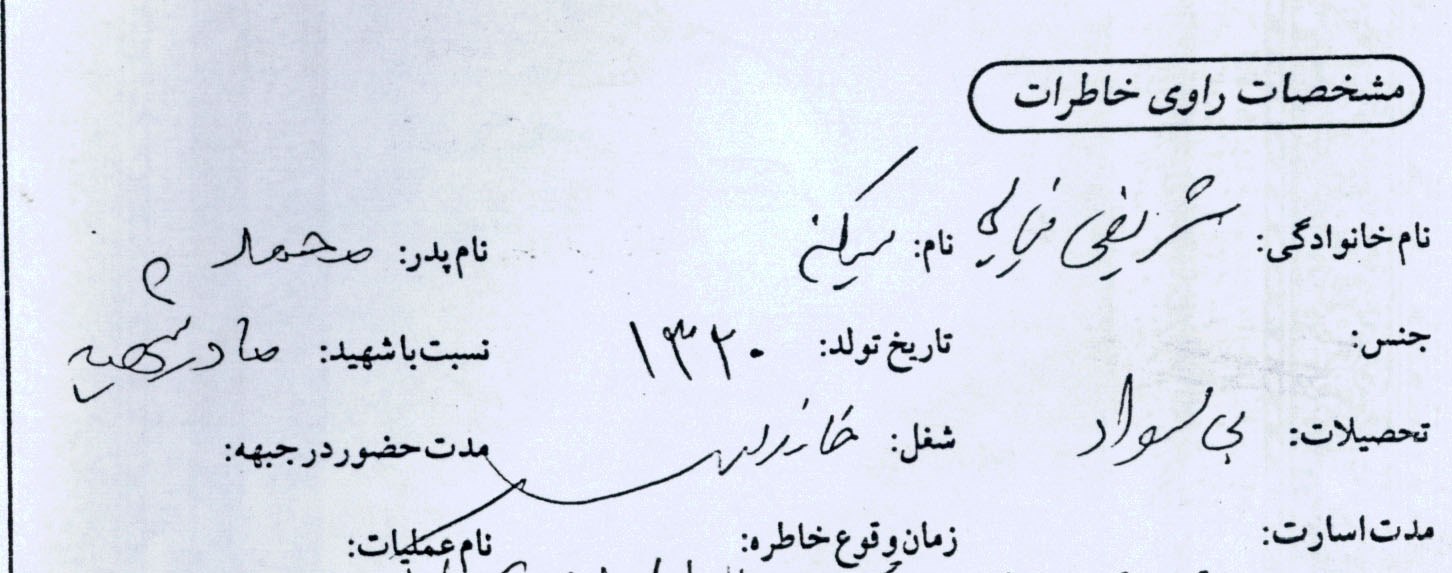 مشخصات راوی خاطرات
نام خانوادگی: شریفی نام: سکینه نام پدر: محمد
جنس: تاریخ تولد: ۱۳۲۰ نسبت با شهید: مادر شهید
تحصیلات: بی سواد شغل: خانه‌دار مدت حضور در جبهه:
مدت اسارت: زمان وقوع خاطره: نام عملیات: